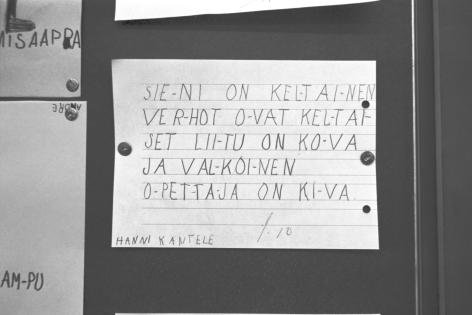 MISAAPRA
ANDRE
SIE-NI ON KEL-TAI-NEN
VER-HOT O-VAT KEL-TAI-
SET LII-TU ON KO-VA
JA VAL-KOI-NEN
O-PETTA-JA ON KI-VA.
HANNI KANTELE
AM-PU